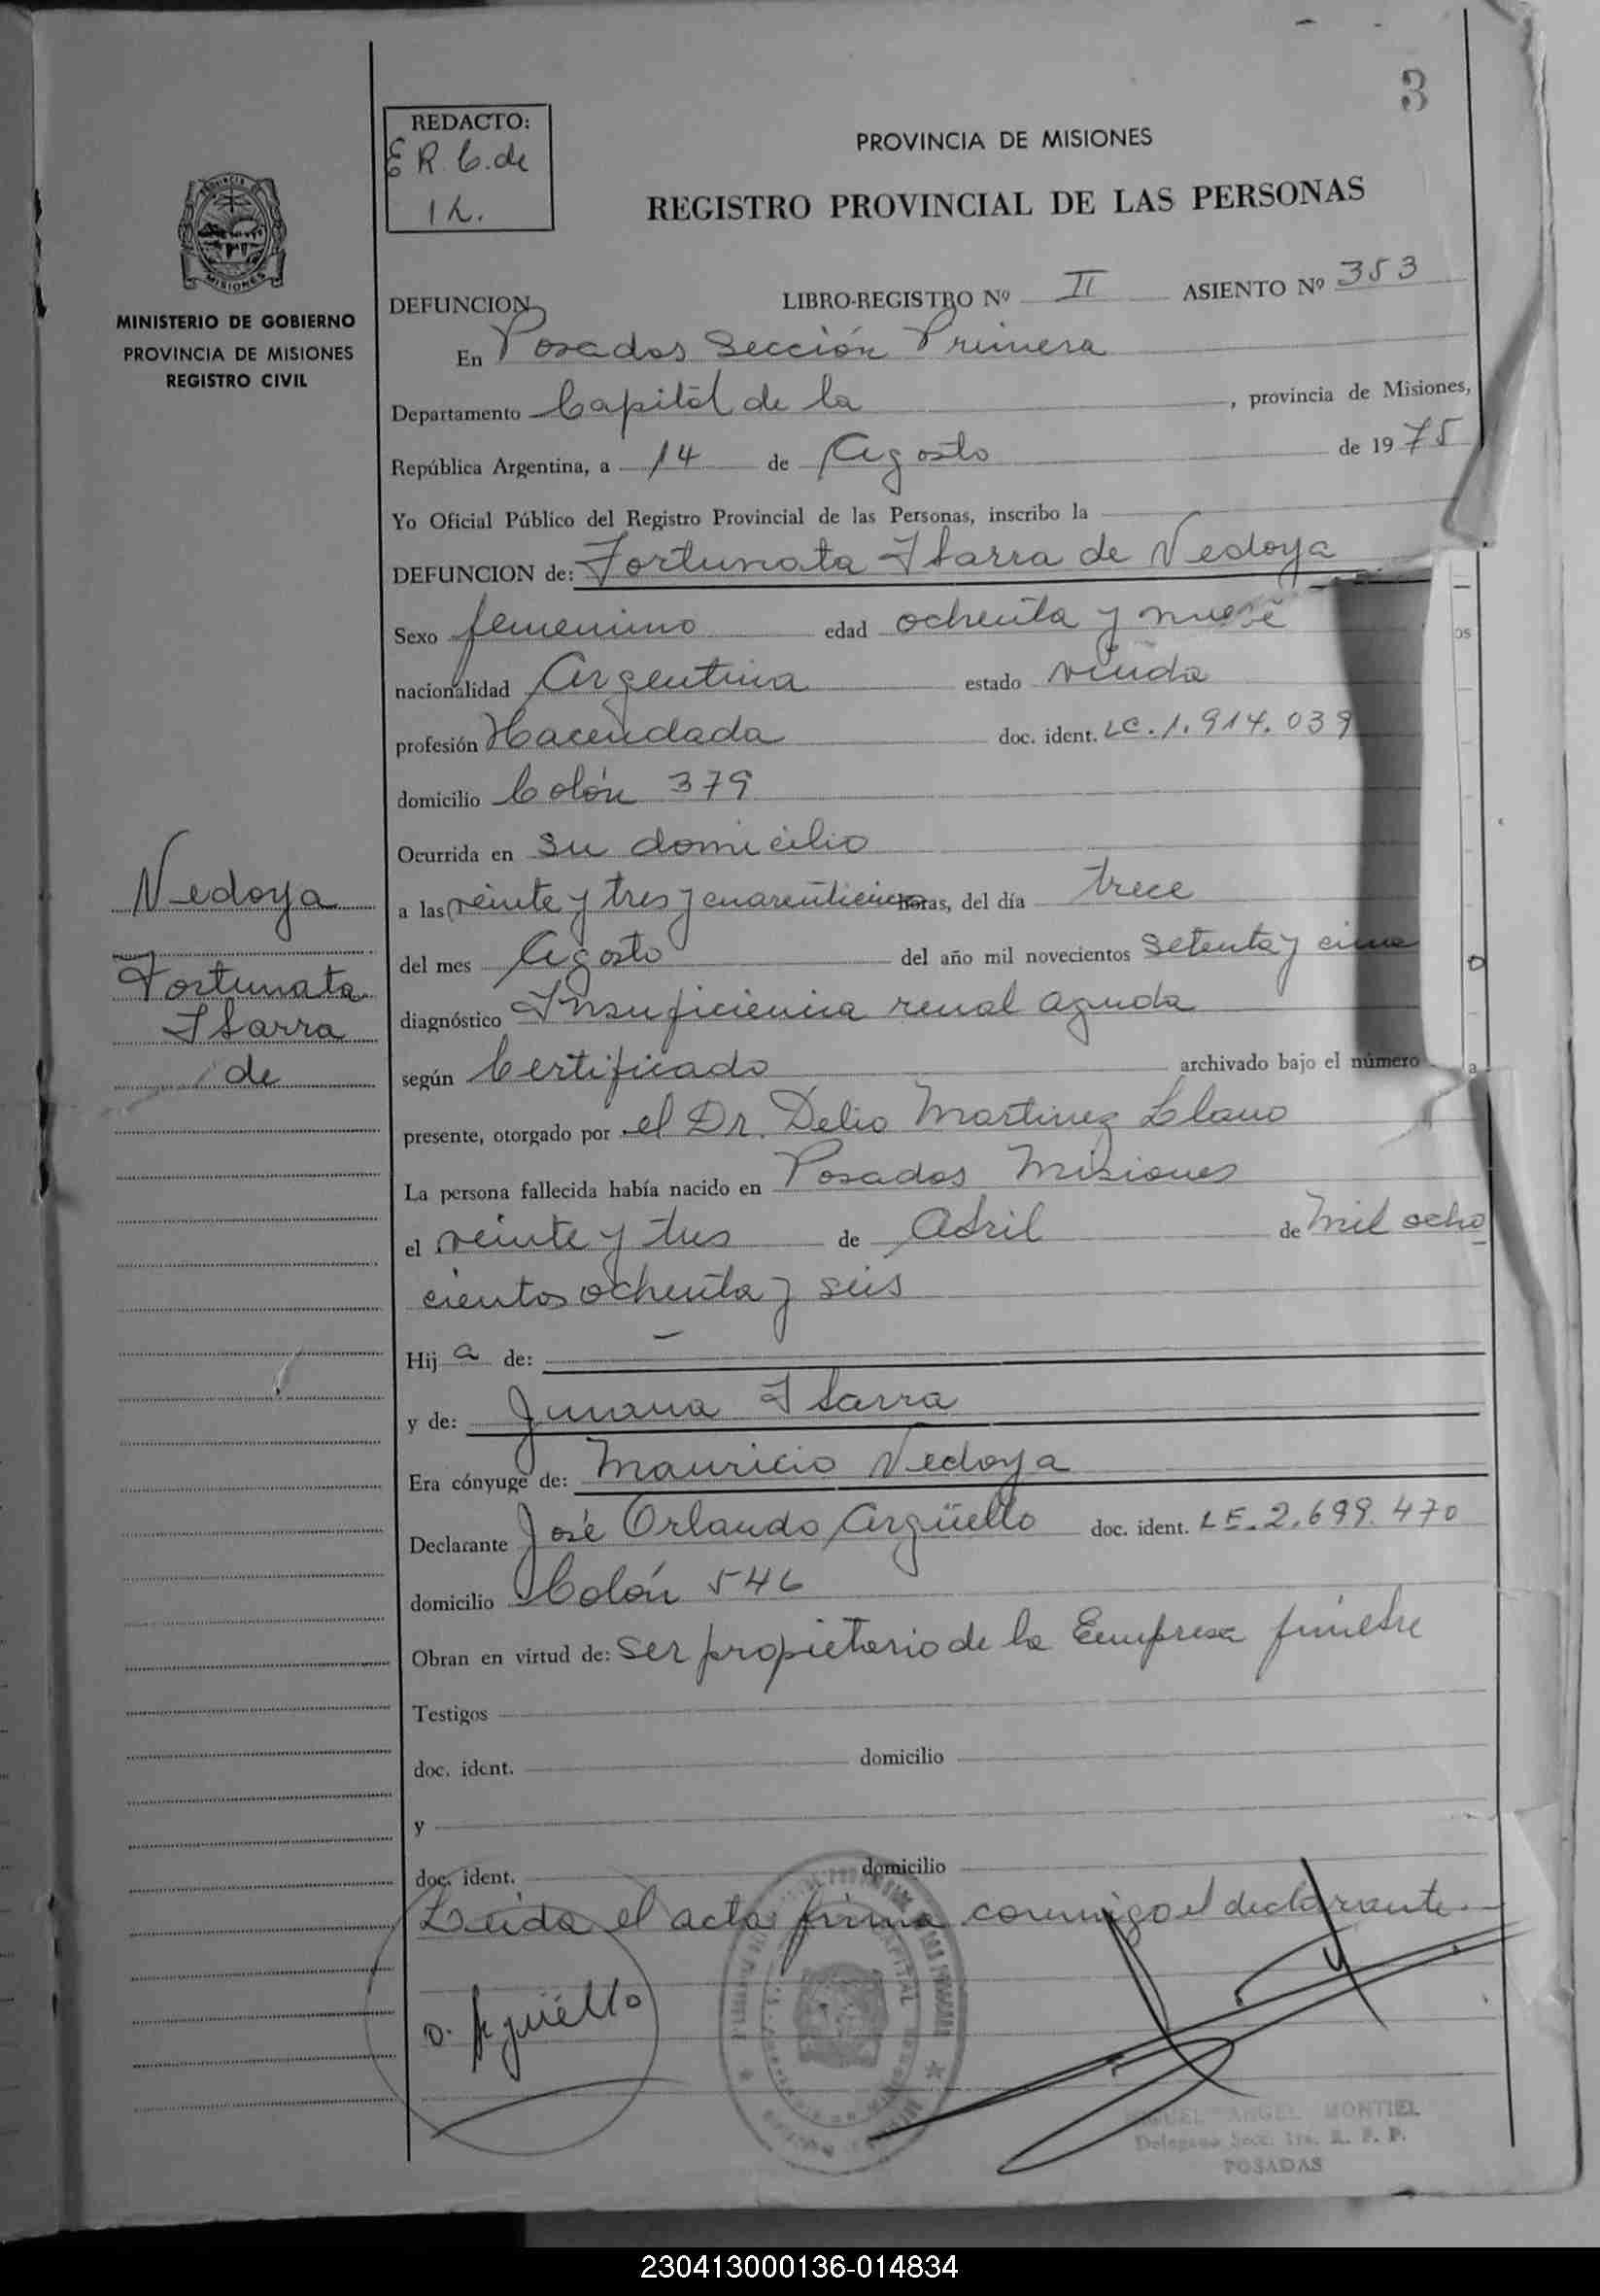 3
REDACTO:
E R. C. de
PROVINCIA DE MISIONES
REGISTRO PROVINCIAL DE LAS PERSONAS
MISIONES
MINISTERIO DE GOBIERNO
PROVINCIA DE MISIONES
REGISTRO CIVIL
DEFUNCION
LIBRO-REGISTRO Nº II ASIENTO Nº 353
En Posadas Sección Primera
Departamento Capital de la , provincia de Misiones,
República Argentina, a 14 de Agosto de 1975
Yo Oficial Público del Registro Provincial de las Personas, inscribo la
DEFUNCION de: Fortunata Ibarra de Vedoya
Sexo femenino edad ochenta y nueve
nacionalidad Argentina estado viuda
profesión Hacendada doc. ident. LC. 1.914.039
domicilio Colón 379
Ocurrida en su domicilio
a las veinte y tres y cuarenticinco horas, del día trece
del mes Agosto del año mil novecientos setenta y cinco
diagnóstico Insuficiencia renal aguda
según Certificado archivado bajo el número
presente, otorgado por el Dr. Delio Martinez Llano
La persona fallecida había nacido en Posadas Misiones
el veinte y tres de Abril de Mil ocho
cientos ochenta y seis
Hij a de: —
y de: Juana Ibarra
Era cónyuge de: Mauricio Vedoya
Declarante José Orlando Argüello doc. ident. LE. 2.699.470
domicilio Colón 546
Obran en virtud de: ser propietario de la Empresa fúnebre
Testigos
doc. ident. domicilio
y
doc. ident. domicilio
Leida el acta firma conmigo el declarante.
O. Argüello
Vedoya
Fortunata
Ibarra
de
CAPITAL
MIGUEL ANGEL MONTIEL
Delegado Secc. 1ra. R. P. P.
POSADAS
230413000136-014834